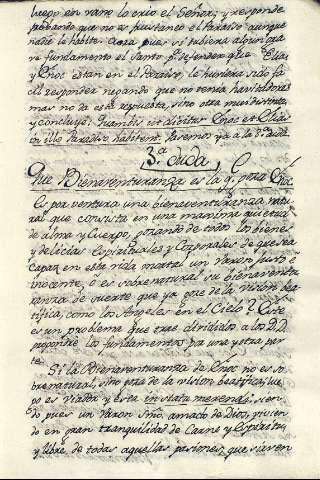 luego en vano lo crio el Señor; y responde
probando que no es frustraneo el Paraiso aunque
nadie lo habite. Ora pues si tubiera algun grave
fundamento el Santo pa. defender que Elias
y Enoc estan en el Paraiso, le huviera sido fa
cil responder negando que no tenia havitadores
mas no da esta respuesta, sino otra mui distinta
y concluye: in illo Paradiso habitent. Paremos ya a la 3a. duda
3.a duda
Que Bienaventuranza es la q. goza Enoc
Es por ventura una bienaventuranza natu
ral que consista en una maxima quietud
de alma y Cuerpo, gozando de todos los bienes
y delicias Espirituales y Corporales de que sea
capaz en esta vida mortal un varon justo e
inocente, o es sobrenatural su bienaventu
ranza de suerte que ya goze de la vision bea
tifica, como los Angeles en el Cielo? Este
es un problema que trae divididos a los D.D.
pondré los fundamentos pr. una y otra par
te.
Si la Bienaventuranza de Enoc no es so
brenatural, sino goza de la vision beatifica, lue
go es viador y esta in statu merendi; sien
do pues un varon Smo. amado de Dios, vivien
do en gran tranquilidad de Carne y Espiritu,
y libre, de todas aquellas pasiones, que sirven